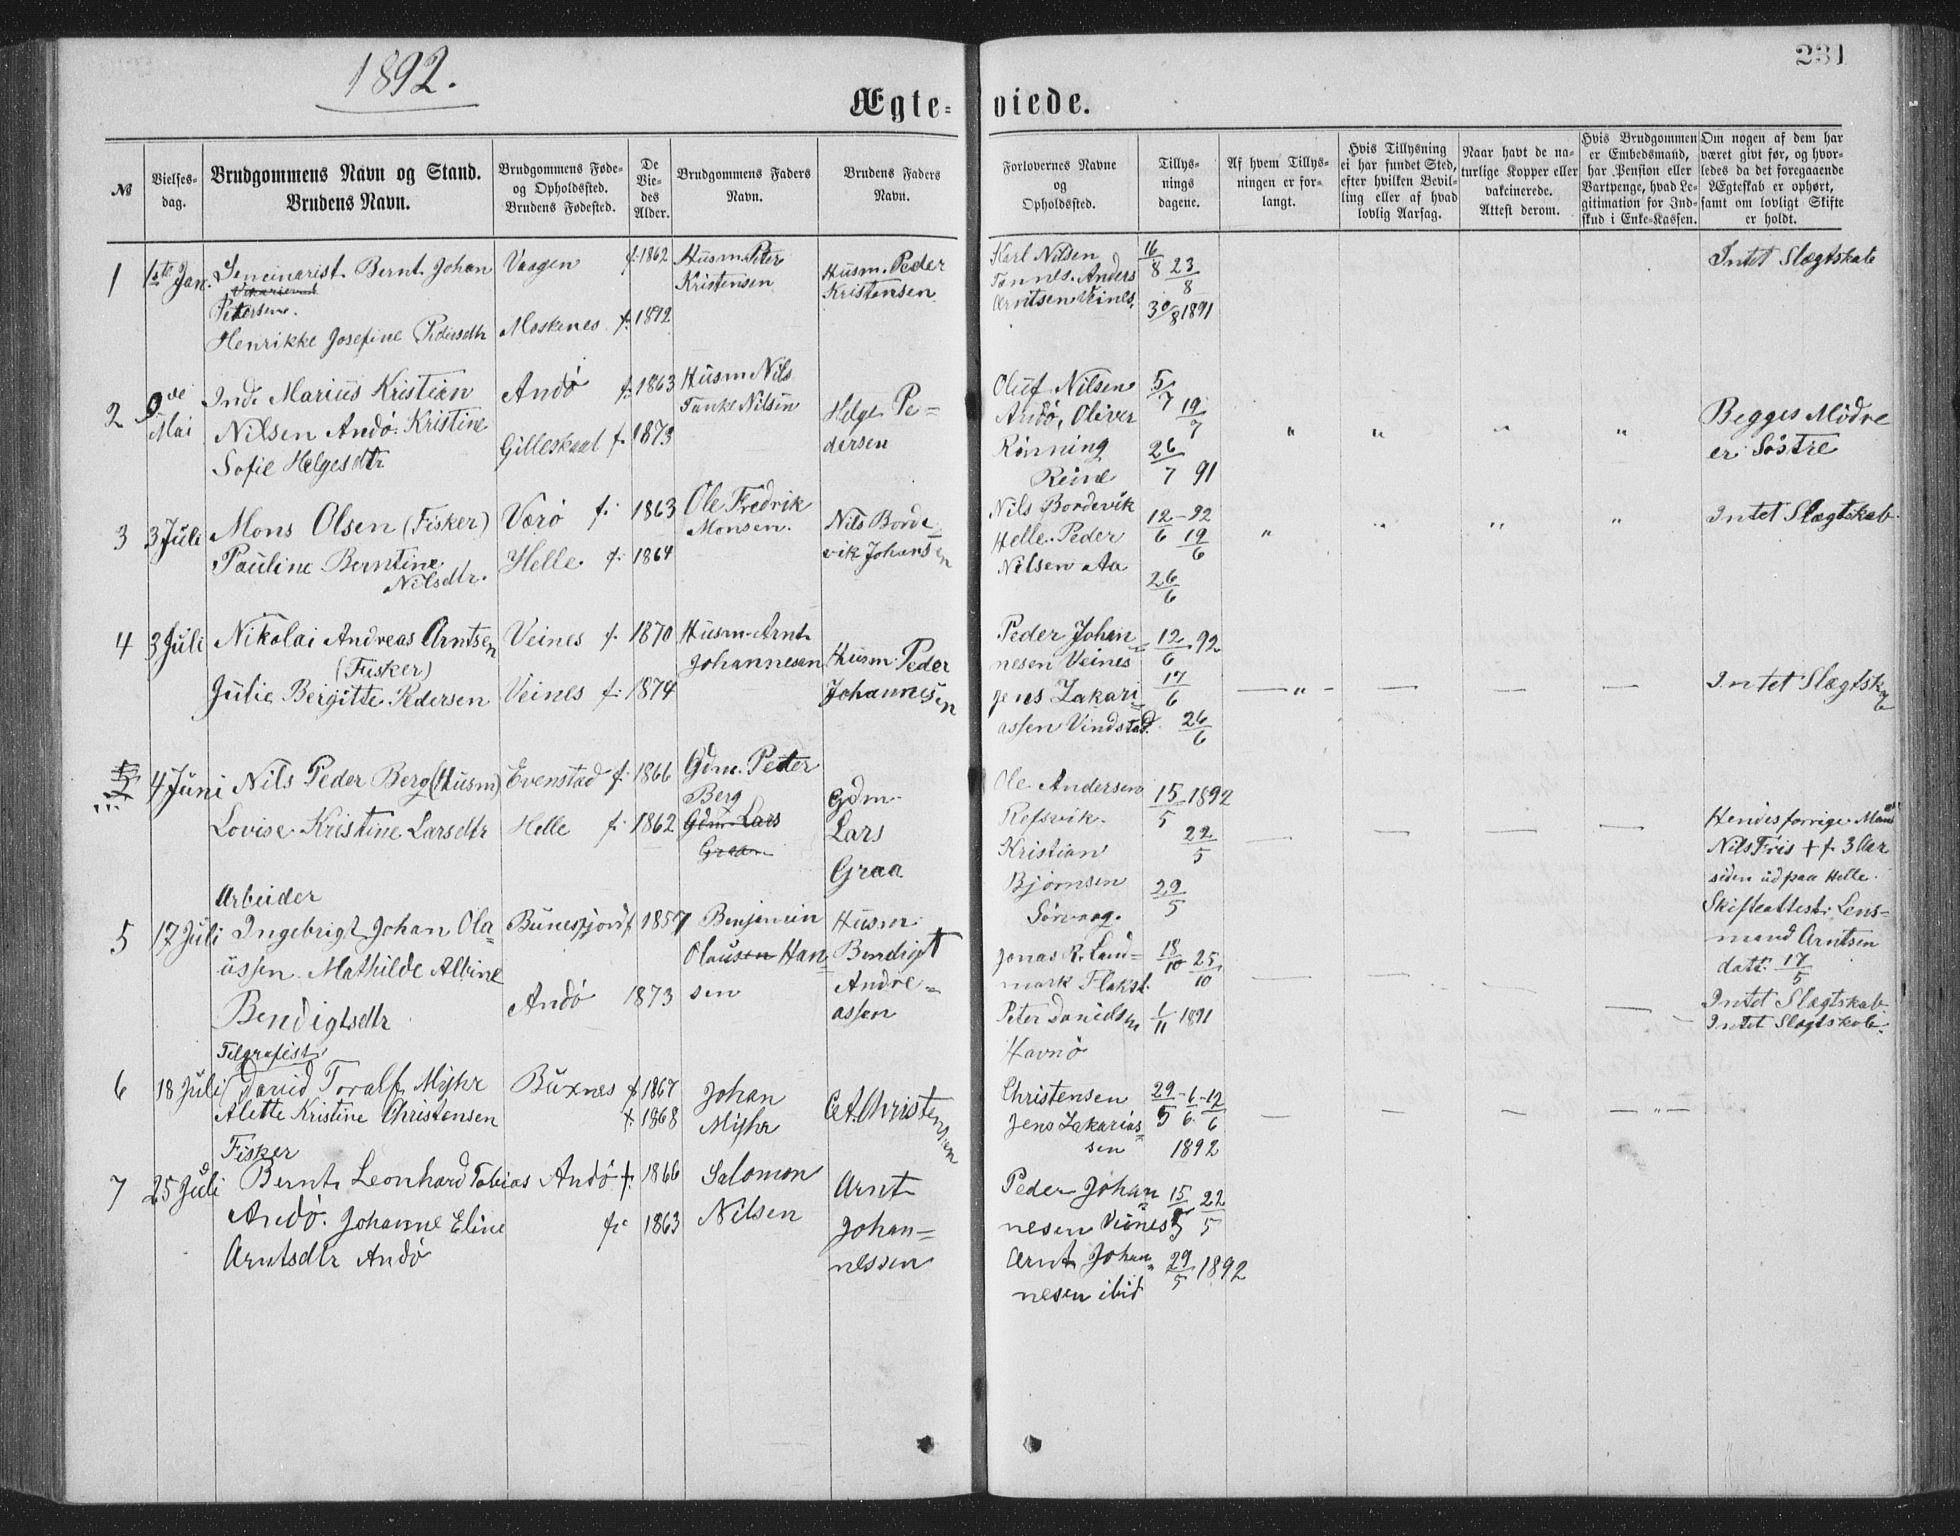 1892.
231
Ægte- viede.
№
Vielses-
dag.
Brudgommens Navn og Stand.
Brudens Navn.
Brudgommens Føde-
og Opholdssted.
Brudens Fødested.
De
Vie-
des
Alder.
Brudgommens Faders
Navn.
Brudens Faders
Navn.
Forlovernes Navne
og
Opholdssted.
Tillys-
nings
dagene.
Af hvem Tillys-
ningen er for-
langt.
Hvis Tillysning
ei har fundet Sted,
efter hvilken Bevil-
ling eller af hvad
lovlig Aarsag.
Naar havt de na-
turlige Kopper eller
vakcinerede.
Attest derom.
Hvis Brudgommen
er Embedsmand,
har Pension eller
Vartpenge, hvad Le-
gitimation for Ind-
skud i Enke-Kassen.
Om nogen af dem har
været givt før, og hvor-
ledes da det foregaaende
Ægteskab er ophørt,
samt om lovligt Skifte
er holdt.
1
1ste Jan.
Seminarist Bernt Johan
Petersen.
Henrikke Josefine Pedersdtr
Vaagen
Moskenes
f. 1862
f. 1872
Husm. Peter
Kristensen
Husm. Peder
Kristensen
Karl Nilsen
Tønnes. Anders
Arntsen Veines.
16/8 23/8
30/8 1891
Intet Slægtskab
2
9de
Mai
Ind. Marius Kristian
Nilsen Andö. Kristine
Sofie Helgesdtr
Andö
Gilleskaal
f. 1863
f. 1873
Husm Nils
Tanke Nilsen
Helge Pe-
dersen
Oluf Nilsen
Andö, Oliver
Rönning
Reine
5/7
19/7
26/7 91
" " " "
Begges Mödre
er Söstre
3
3 Juli
Mons Olsen (Fisker)
Pauline Berntine
Nilsdtr.
Værö
Helle
f. 1863
f. 1864
Ole Fredrik
Monsen.
Nils Borde
vik Johansen
Nils Bordevik
Helle. Peder
Nilsen Aa
12/6 - 92
19/6
26/6
" " " "
Intet Slægtskab.
4
3 Juli
Nikolai Andreas Arntsen
(Fisker)
Julie Beigitte Pedersen
Veines
Veines
f. 1870
f. 1874
Husm. Arnt
Johannesen
Husm. Peder
Johannesen
Peder Johan-
nesen Veines
Jens Zakari-
assen Vindstad.
12/6 92
17/6
26/6
— " — — — —
Intet Slægtskab
5
4 Juni
Nils Peder Berg (Husm)
Lovise Kristine Larsdtr
Evenstad
Helle
f. 1866
f. 1862
Gdm. Peter
Berg
Gdm. Lars
Graa
Gdm.
Lars
Graa
Ole Andersen
Refsvik.
Kristian
Björnsen
Sörvaag.
15/5 1892
22/5
29/5
— — — —
Hendes forrige Mand
Nils Friis + f. 3 Aar
siden ud paa Helle.
Skifteattest: Lens-
mand Arntsen
dat: 17/5
Intet Slægtskab
5
17 Juli
Arbeider
Ingebrigt Johan Ola-
ussen. Mathilde Albine
Bendigtsdtr
Bunesfjord
Andö
f. 1857
1873
Benjamin
Olausen Han-
sen
Husm.
Bendigt
Andre-
assen
Jonas R. Land-
mark Flakst.
Peter Danielsen
Havnö
18/10 25/10
1/11 1891
— — — —
Intet Slægtskab.
6
18 Juli
Telgrafist
David Toralf Myhr
Alette Kristine Christensen
Buxnes
f. 1867
f. 1868
Johan
Myhr
C. A. Christensen
Christensen
Jens Zakarias-
sen
29/5 - 6/6 - 12/6
1892
— — — — " —
7
25 Juli
Fisker
Bernt Leonhard Tobias
Andö. Johanne Eline
Arntsdtr Andö
Andö
f. 1866
f. 1863
Salomon
Nilsen
Arnt
Johan-
nessen
Peder Johan-
nesen Veines
Arnt Johan-
nesen ibid
15/5 22/5
29/5 1892